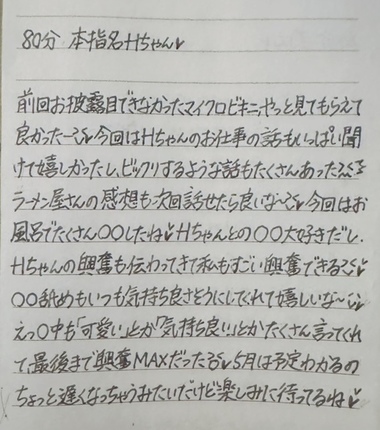 80分 本指名Hちゃん♥
前回お披露目できなかったマイクロビキニやっと見てもらえて
良かったー 今回はHちゃんのお仕事の話もいっぱい聞
けて嬉しかったし、ビックリするような話もたくさんあった
ラーメン屋さんの感想も次回話せたら良いな〜 今回はお
風呂でたくさん〇〇したね♥Hちゃんとの〇〇大好きだし、
Hちゃんの興奮も伝わってきて私もすごい興奮できる
〇〇舐めもいつも気持ち良さそうにしてくれて嬉しいな〜
えっ〇中も「可愛い」とか「気持ち良い」とかたくさん言ってくれ
て、最後まで興奮MAXだった 5月は予定わかるの
ちょっと遅くなっちゃうみたいだけど楽しみに待ってるね♥